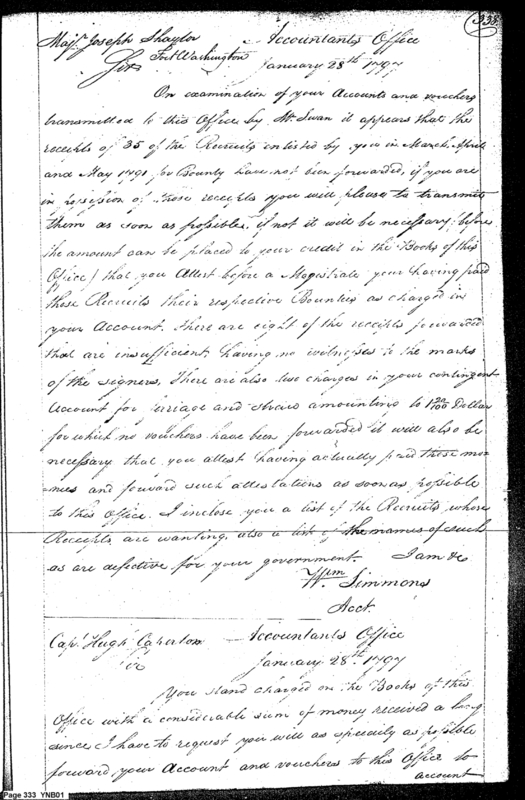 333
Majr. Joseph Shaylor Accountants Office
Fort Washington
Sir January 28th. 1797
On examination of your Accounts and vouchers
transmitted to this Office by Mr. Swan it appears that the
receipts of 35 of the Recruits enlisted by you in March, April
and May 1791 for Bounty have not been forwarded, if you are
in possession of those receipts you will please to transmit
them as soon as possible, if not it will be necessary (before
the amount can be placed to your credit in the Books of this
Office) that you Attest before a Magistrate your having paid
those Recruits their respective Bounties as charged in
your Account. There are eight of the receipts forwarded
that are insufficient having no witnesses to the marks
of the signers, There are also two charges in your contingent
Account for ferriage and straw amounting to 1 20/100 Dollar
for which no vouchers have been forwarded it will also be
necessary that you attest having actually paid these mo-
nies and forward such attestations as soon as possible
to this Office. I inclose you a list of the Recruits whose
Receipts are wanting also a list of the names of such
as are defective for your government. I am &c
Wm. Simmons
Acct.
Capt. Hugh Caperton Accountants Office
Sir January 28th. 1797
You stand charged on the Books of this
Office with a considerable sum of money received a long
since I have to request you will as speedily as possible
forward your Account and vouchers to this Office so
account
Page 333 YNB01